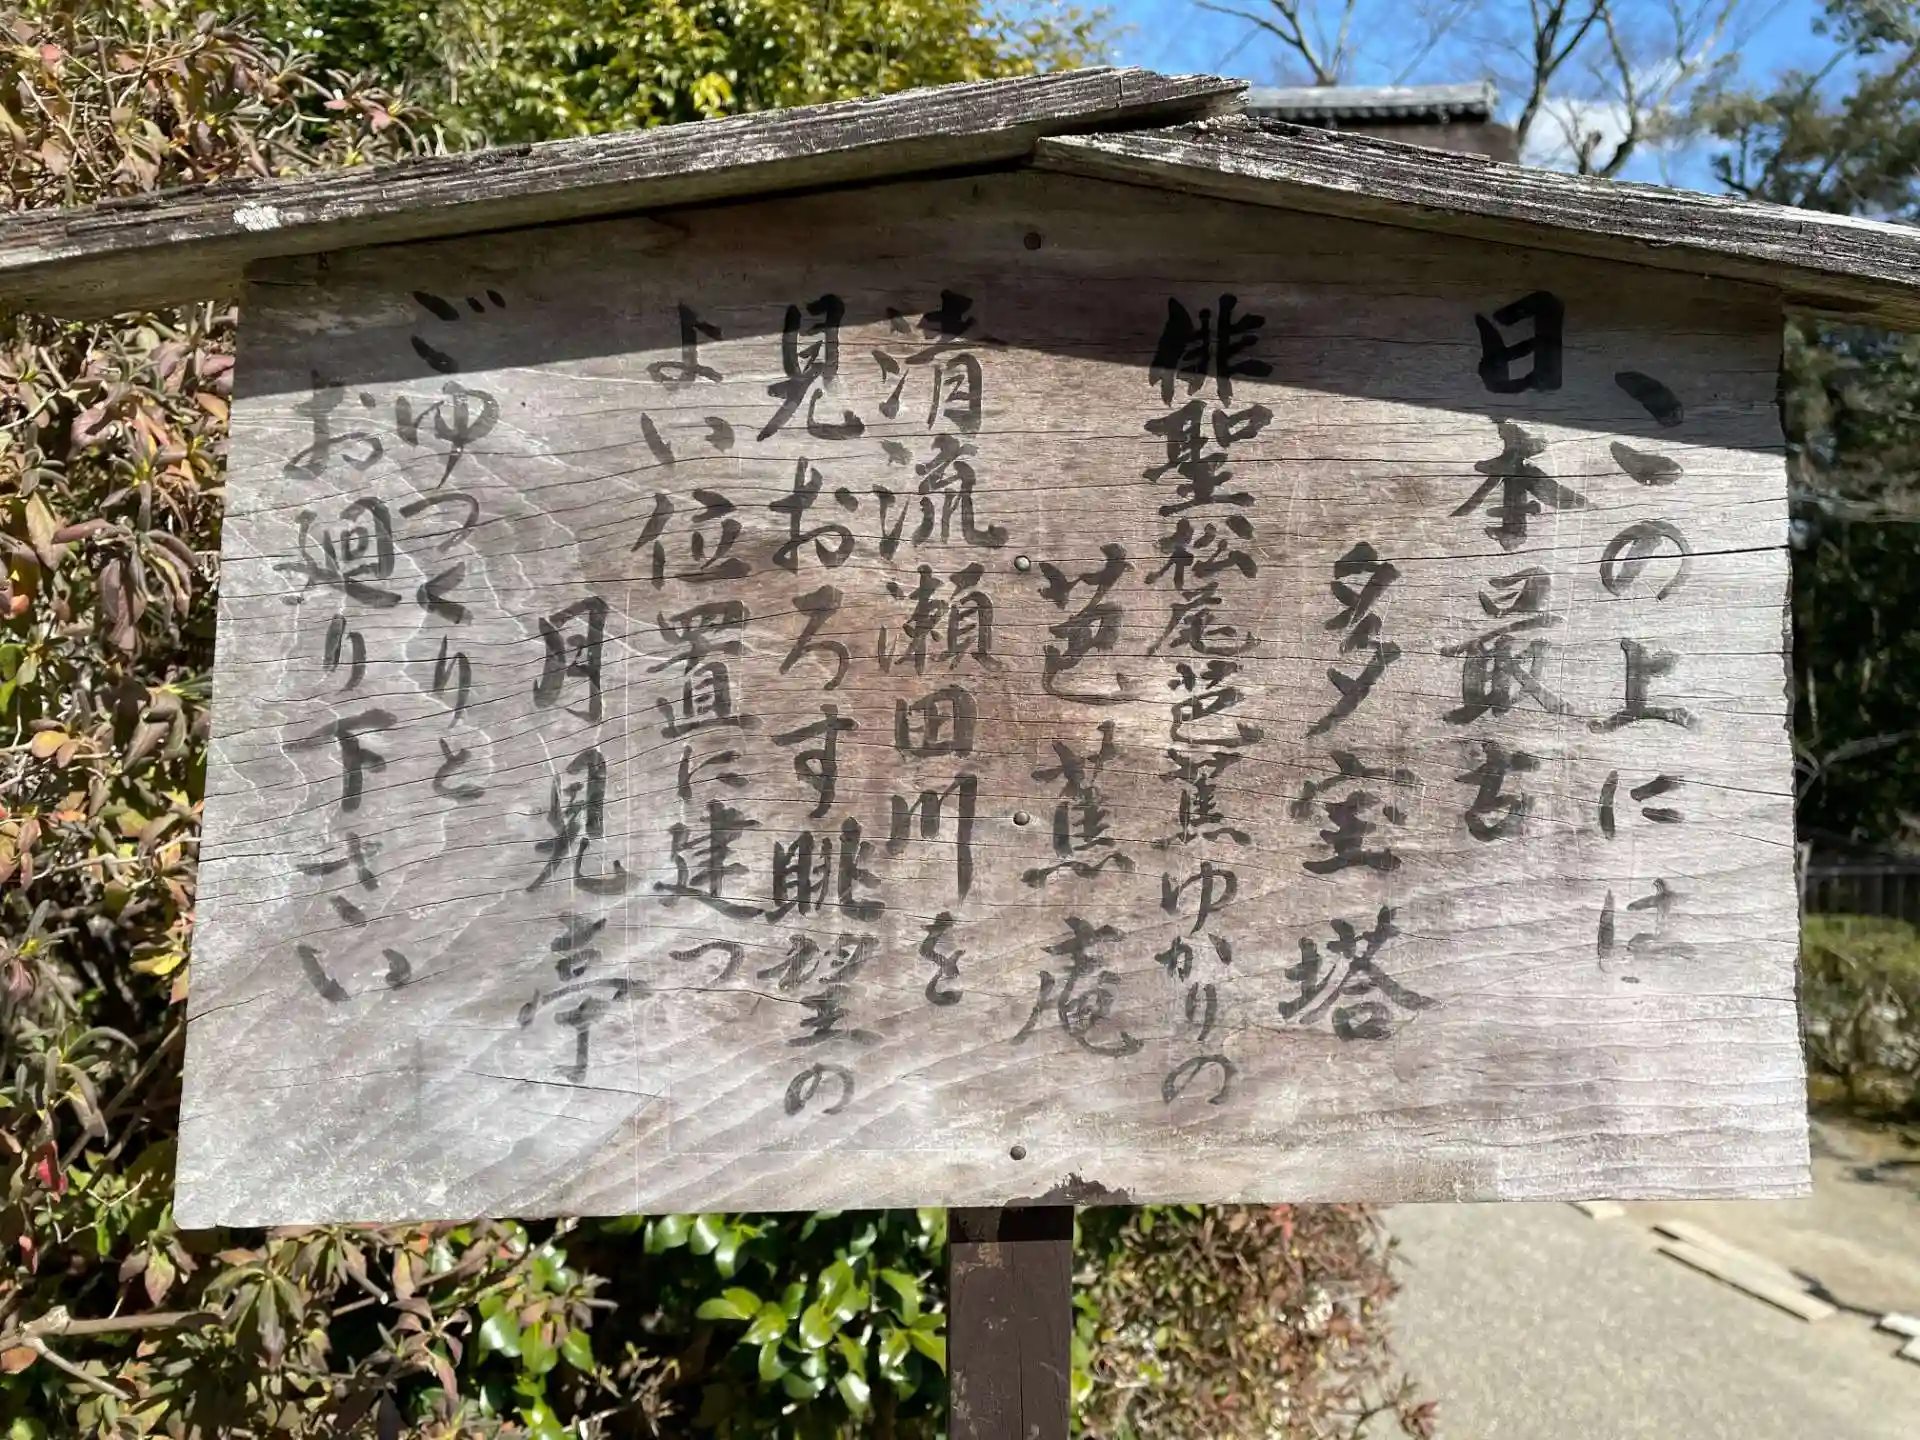 、この上には
日本最古
多宝塔
俳聖松尾芭蕉ゆかりの
芭蕉庵
清流瀬田川を
見おろす眺望の
よい位置に建つ
月見亭
ごゆっくりと
お廻り下さい